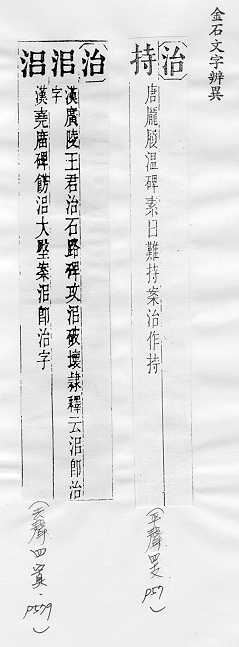 金石文字辨異
治
持
唐龐履温碑素日難持案治作持
(平聲四支 P57)
治
漢廣陵王君治石路碑攻破壞隸釋云即治
字
漢堯廟碑飭大壂案即治字
(去聲四寘 P579)